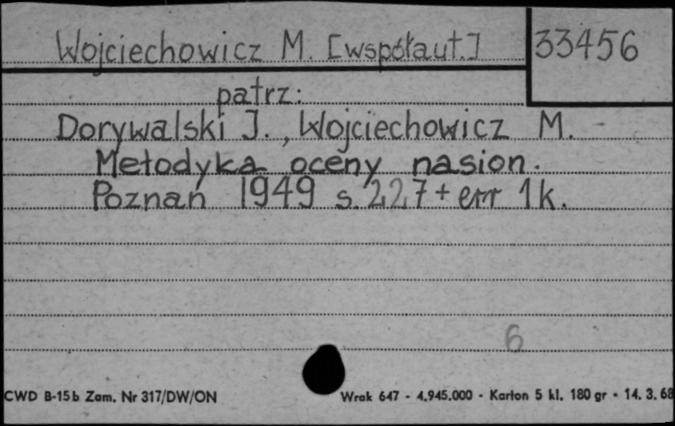 Wojciechowicz M. [współaut.] 33456
patrz:
Dorywalski J., Wojciechowicz M.
Metodyka oceny nasion.
Poznań 1949 s. 227 + err 1k.
6
CWD B-15b Zam. Nr 317/DW/ON Wrak 647 - 4.945.000 - Karton 5 kl. 180 gr - 14. 3. 68